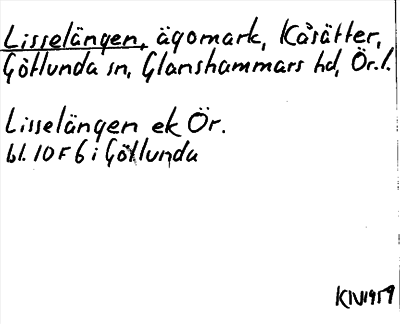 Lisselängen, ägomark, Kåsätter,
Götlunda sn, Glanshammars hd, Ör.l.
Lisselängen ek Ör.
bl. 10 F 6 i Götlunda